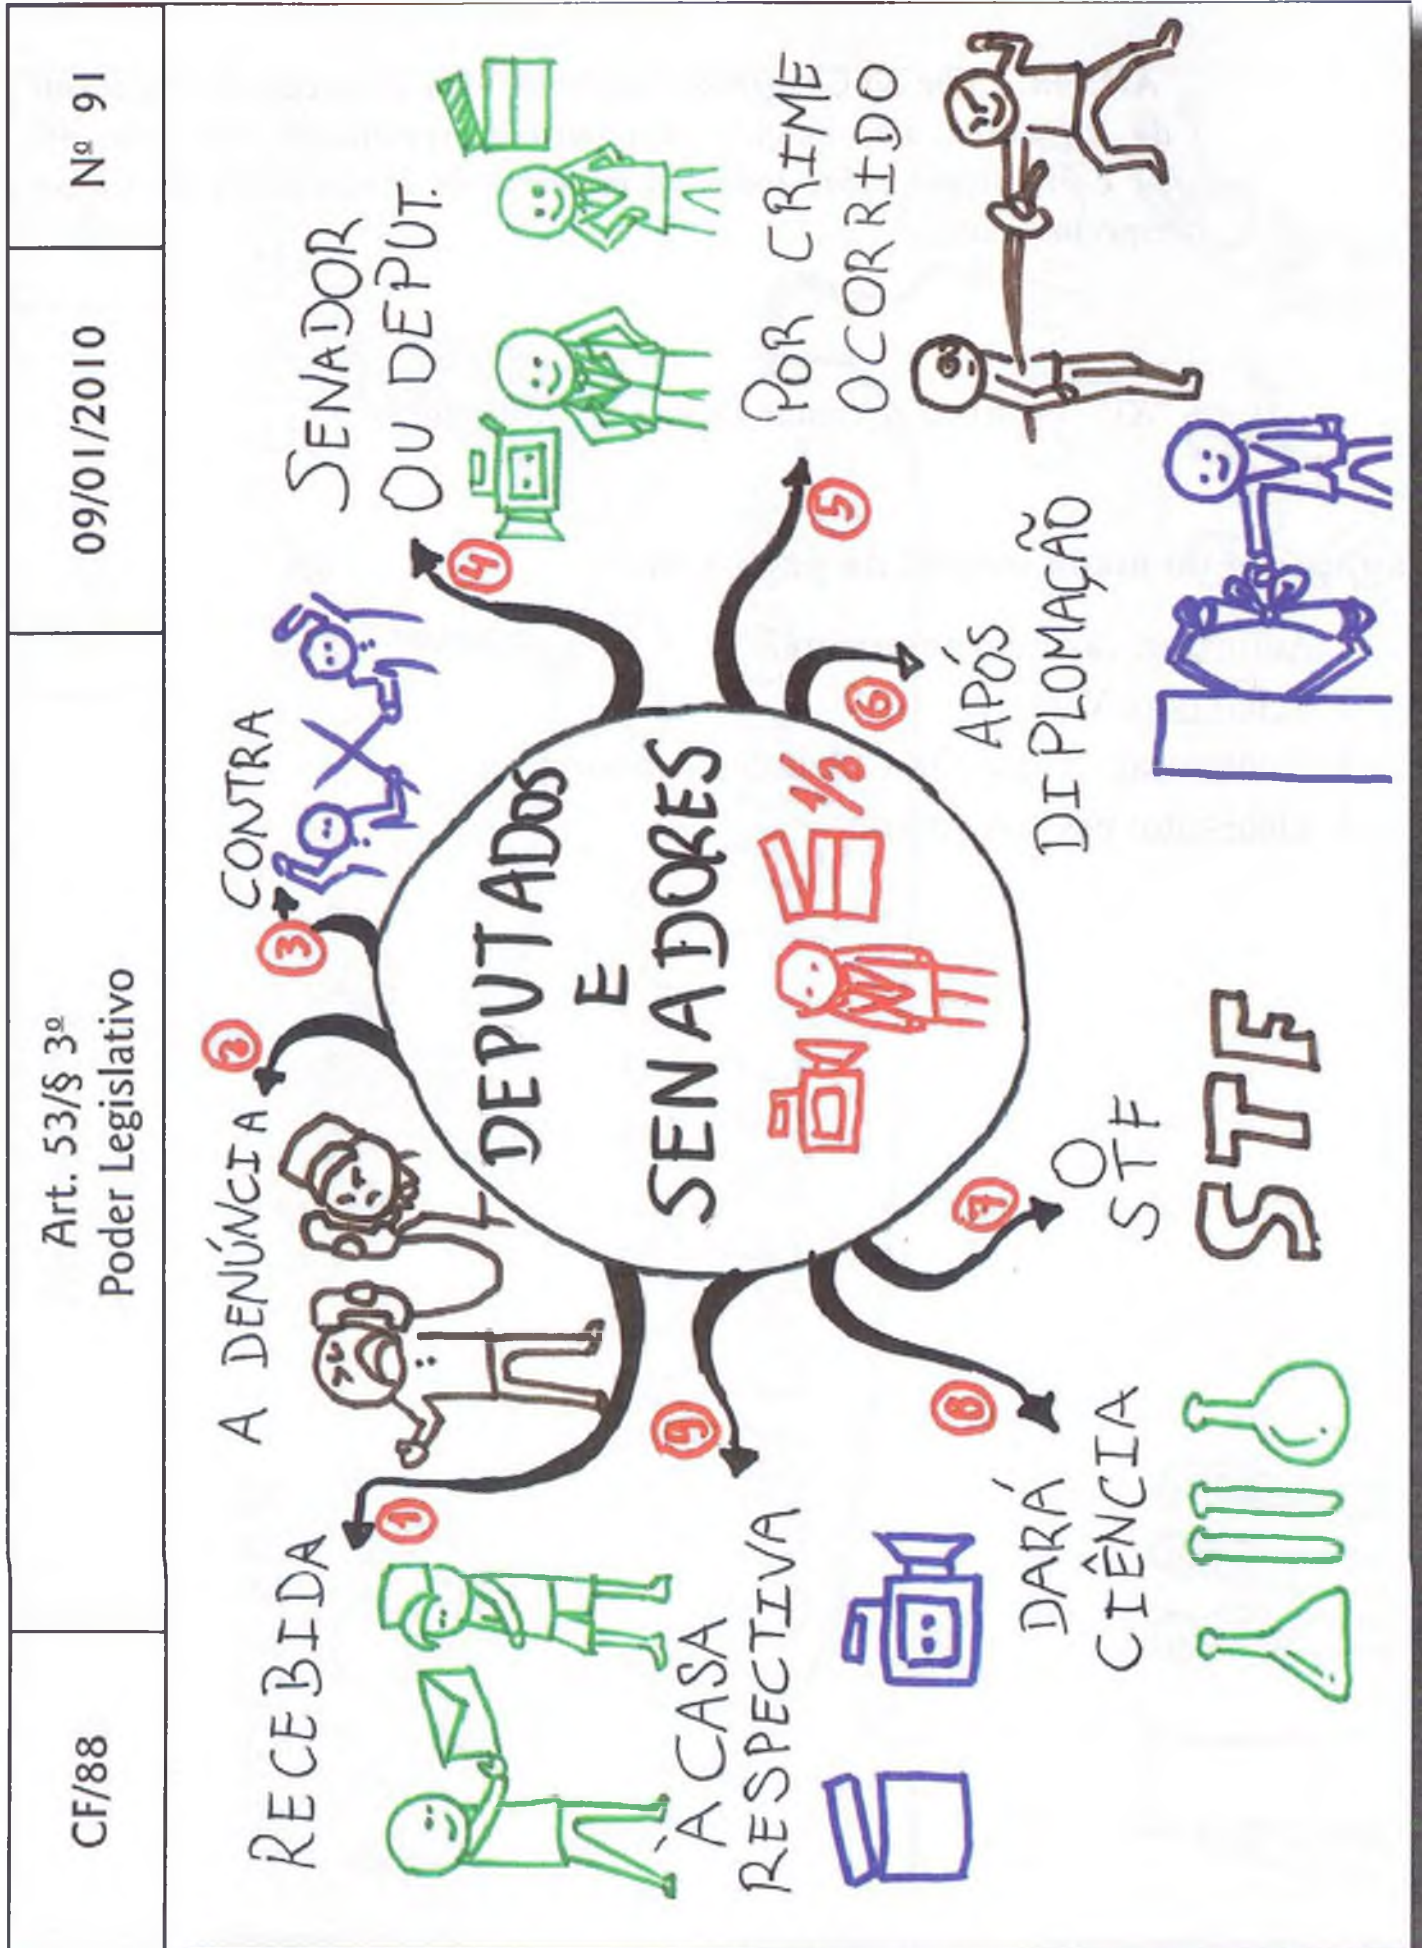 CF/88
Art. 53/§ 3º
Poder Legislativo
09/01/2010
Nº 91
DEPUTADOS
E
SENADORES
1/2
1
RECEBIDA
2
A DENÚNCIA
3
CONTRA
4
SENADOR
OU DEPUT.
5
POR CRIME
OCORRIDO
6
APÓS
DIPLOMAÇÃO
7
O
STF
STF
8
DARÁ
CIÊNCIA
9
À CASA
RESPECTIVA